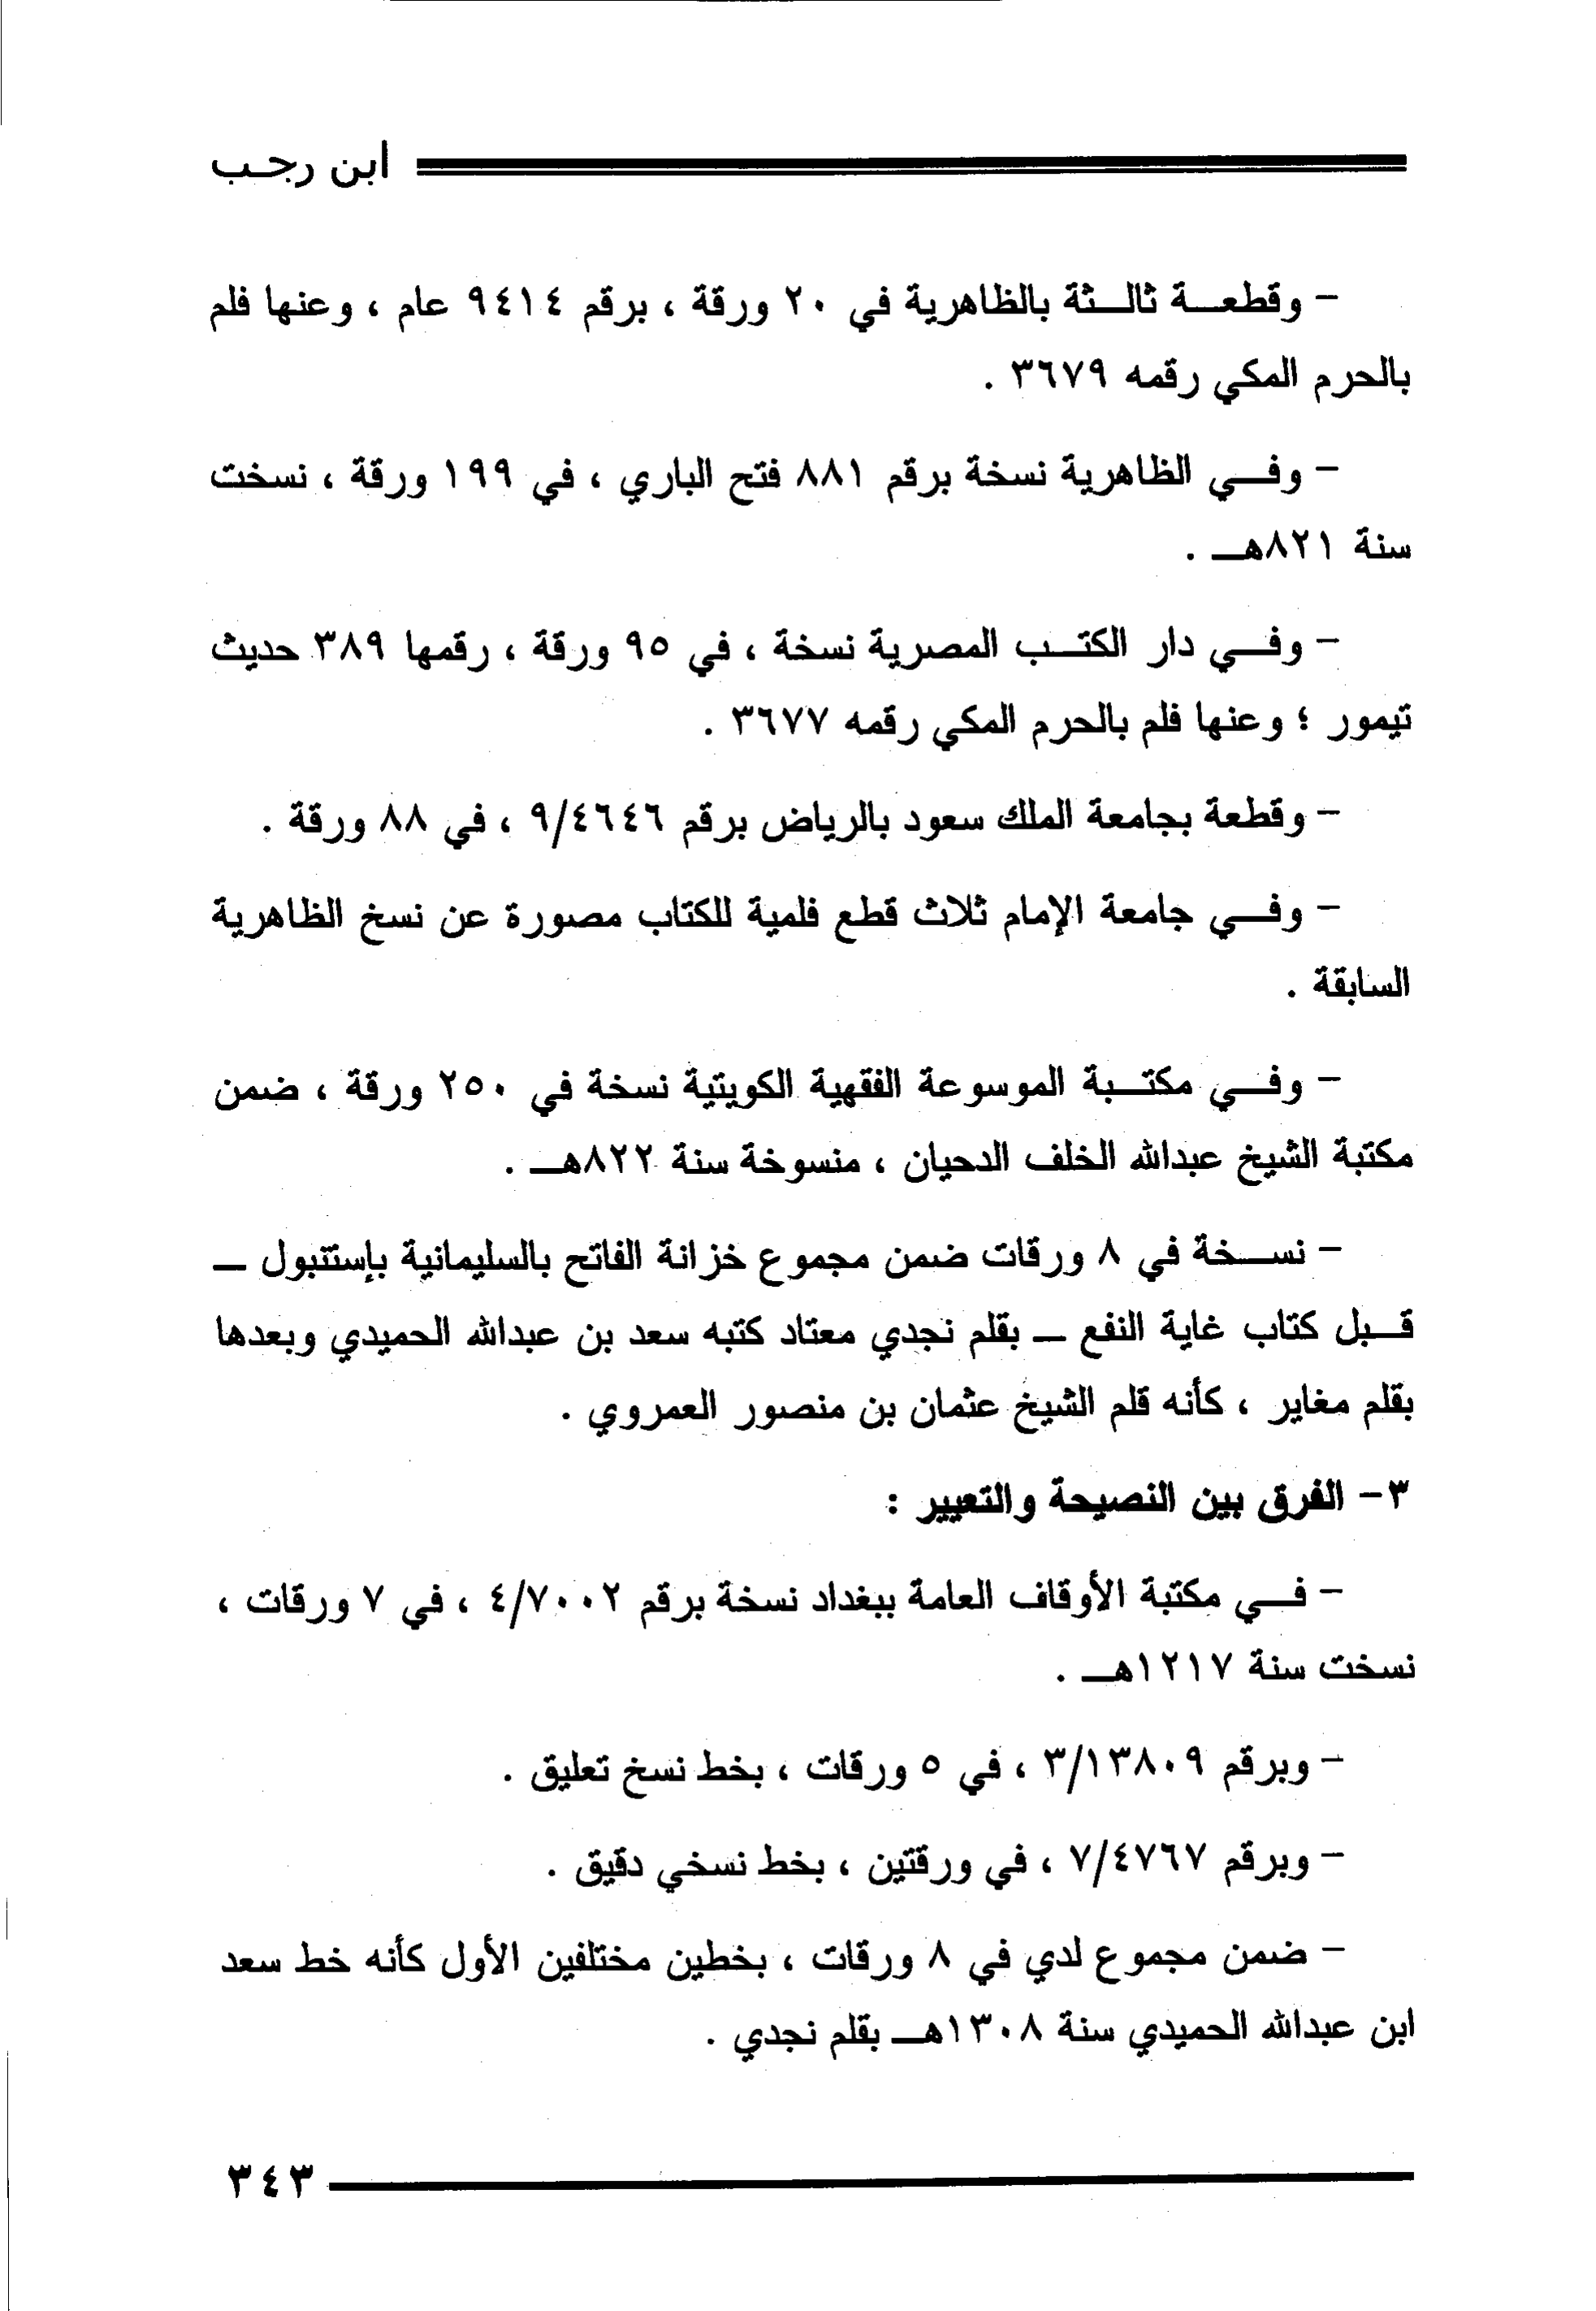 ابن رجب
- وقطعة ثالثة بالظاهرية في ٢٠ ورقة ، برقم ٩٤١٤ عام ، وعنها فلم
بالحرم المكي رقمه ٣٦٧٩ .
- وفي الظاهرية نسخة برقم ٨٨١ فتح الباري ، في ١٩٩ ورقة ، نسخت
سنة ٨٢١هـ .
- وفي دار الكتب المصرية نسخة ، في ٩٥ ورقة ، رقمها ٣٨٩ حديث
تيمور ؛ وعنها فلم بالحرم المكي رقمه ٣٦٧٧ .
- وقطعة بجامعة الملك سعود بالرياض برقم ٩/٤٦٤٦ ، في ٨٨ ورقة .
- وفي جامعة الإمام ثلاث قطع فلمية للكتاب مصورة عن نسخ الظاهرية
السابقة .
- وفي مكتبة الموسوعة الفقهية الكويتية نسخة في ٢٥٠ ورقة ، ضمن
مكتبة الشيخ عبدالله الخلف الدحيان ، منسوخة سنة ٨٢٢هـ .
- نسخة في ٨ ورقات ضمن مجموع خزانة الفاتح بالسليمانية بإستنبول —
قبل كتاب غاية النفع — بقلم نجدي معتاد كتبه سعد بن عبدالله الحميدي وبعدها
بقلم مغاير ، كأنه قلم الشيخ عثمان بن منصور العمروي .
٣- الفرق بين النصيحة والتعيير :
- في مكتبة الأوقاف العامة ببغداد نسخة برقم ٤/٧٠٠٢ ، في ٧ ورقات ،
نسخت سنة ١٢١٧هـ .
- وبرقم ٣/١٣٨٠٩ ، في ٥ ورقات ، بخط نسخ تعليق .
- وبرقم ٧/٤٧٦٧ ، في ورقتين ، بخط نسخي دقيق .
- ضمن مجموع لدي في ٨ ورقات ، بخطين مختلفين الأول كأنه خط سعد
ابن عبدالله الحميدي سنة ١٣٠٨هـ بقلم نجدي .
٣٤٣